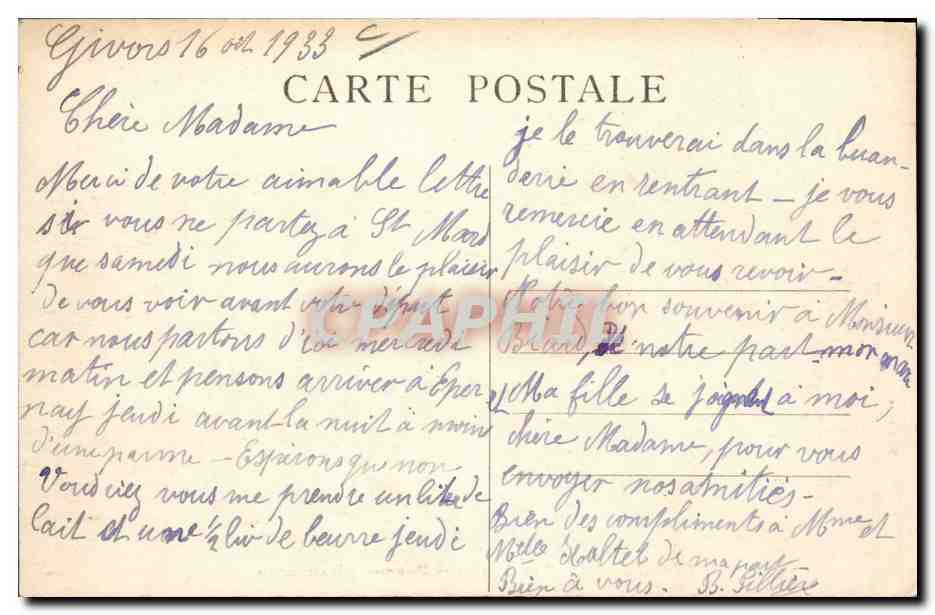 Givors 16 oct 1933
CARTE POSTALE
Chère Madame
Merci de votre aimable lettre
si vous ne partez à St Mard
que samedi nous aurons le plaisir
de vous voir avant votre départ
car nous partons d'ici mercredi
matin et pensons arriver à Eper
nay jeudi avant la nuit à moins
d'une panne – Espérons que non
Voudriez vous me prendre un litre de
lait et une 1/2 liv de beurre jeudi
je le trouverai dans la buan-
derie en rentrant – je vous
remercie en attendant le
plaisir de vous revoir –
Notre bon souvenir à Monsieur
Biard, de notre part mon mari
et Ma fille se joignent à moi,
chère Madame, pour vous
envoyer nos amitiés –
Bien des compliments à Mme et
Melle de ma part
Bien à vous. B.
CPAPHIL